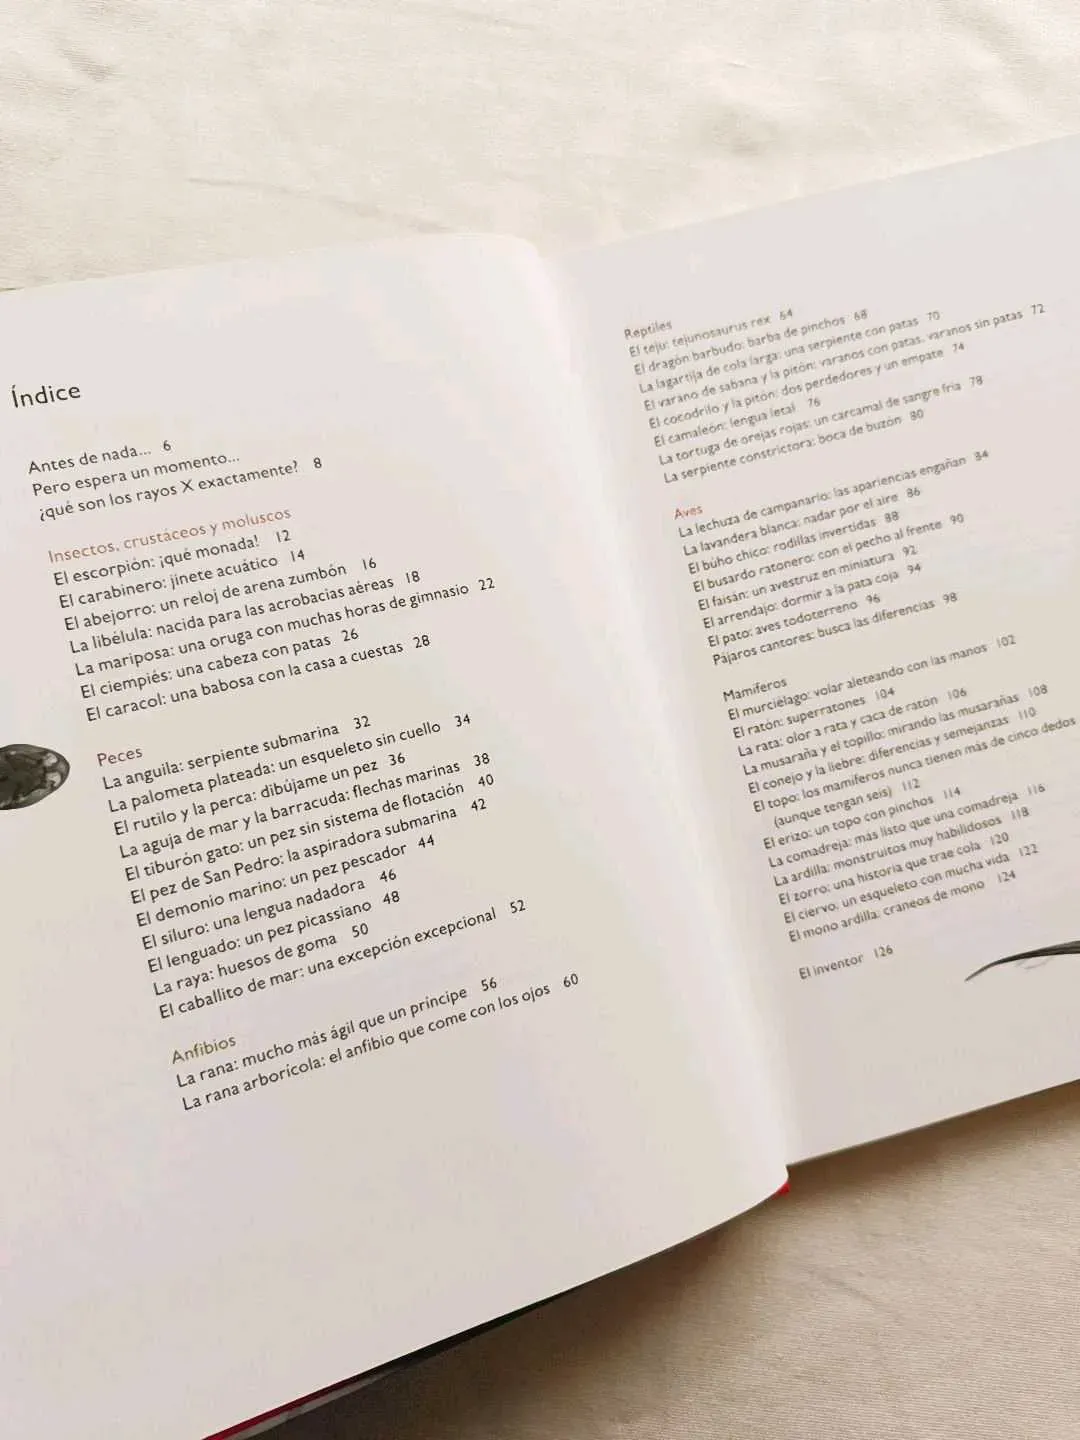 Índice
Antes de nada... 6
Pero espera un momento...
¿qué son los rayos X exactamente? 8
Insectos, crustáceos y moluscos
El escorpión: ¡qué monada! 12
El carabinero: jinete acuático 14
El abejorro: un reloj de arena zumbón 16
La libélula: nacida para las acrobacias aéreas 18
La mariposa: una oruga con muchas horas de gimnasio 22
El ciempiés: una cabeza con patas 26
El caracol: una babosa con la casa a cuestas 28
Peces
La anguila: serpiente submarina 32
La palometa plateada: un esqueleto sin cuello 34
El rutilo y la perca: dibújame un pez 36
La aguja de mar y la barracuda: flechas marinas 38
El tiburón gato: un pez sin sistema de flotación 40
El pez de San Pedro: la aspiradora submarina 42
El demonio marino: un pez pescador 44
El siluro: una lengua nadadora 46
El lenguado: un pez picassiano 48
La raya: huesos de goma 50
El caballito de mar: una excepción excepcional 52
Anfibios
La rana: mucho más ágil que un príncipe 56
La rana arborícola: el anfibio que come con los ojos 60
Reptiles
El teju: tejunosaurus rex 64
El dragón barbudo: barba de pinchos 68
La lagartija de cola larga: una serpiente con patas 70
El varano de sabana y la pitón: varanos con patas, varanos sin patas 72
El cocodrilo y la pitón: dos perdedores y un empate 74
El camaleón: lengua letal 76
La tortuga de orejas rojas: un carcamal de sangre fría 78
La serpiente constrictora: boca de buzón 80
Aves
La lechuza de campanario: las apariencias engañan 84
La lavandera blanca: nadar por el aire 86
El búho chico: rodillas invertidas 88
El busardo ratonero: con el pecho al frente 90
El faisán: un avestruz en miniatura 92
El arrendajo: dormir a la pata coja 94
El pato: aves todoterreno 96
Pájaros cantores: busca las diferencias 98
Mamíferos
El murciélago: volar aleteando con las manos 102
El ratón: superratones 104
La rata: olor a rata y caca de ratón 106
La musaraña y el topillo: mirando las musarañas 108
El conejo y la liebre: diferencias y semejanzas 110
El topo: los mamíferos nunca tienen más de cinco dedos
(aunque tengan seis) 112
El erizo: un topo con pinchos 114
La comadreja: más listo que una comadreja 116
La ardilla: monstruitos muy habilidosos 118
El zorro: una historia que trae cola 120
El ciervo: un esqueleto con mucha vida 122
El mono ardilla: craneos de mono 124
El inventor 126